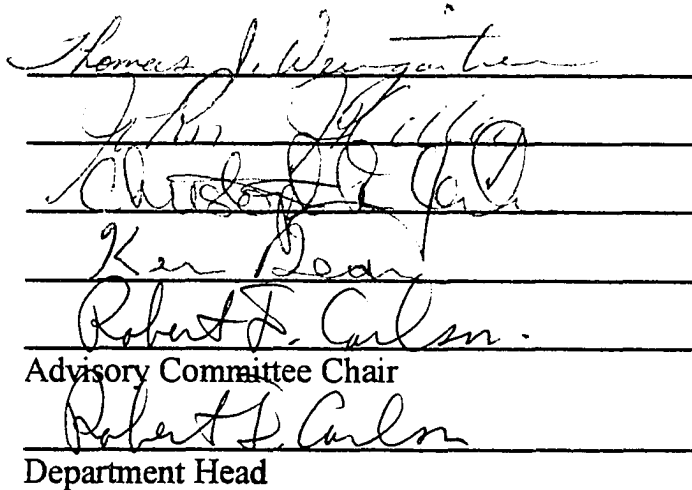 Thomas J. Weingartner
John
Christopher
Ken Dean
Robert F. Carlson.
Advisory Committee Chair
Robert F. Carlson
Department Head